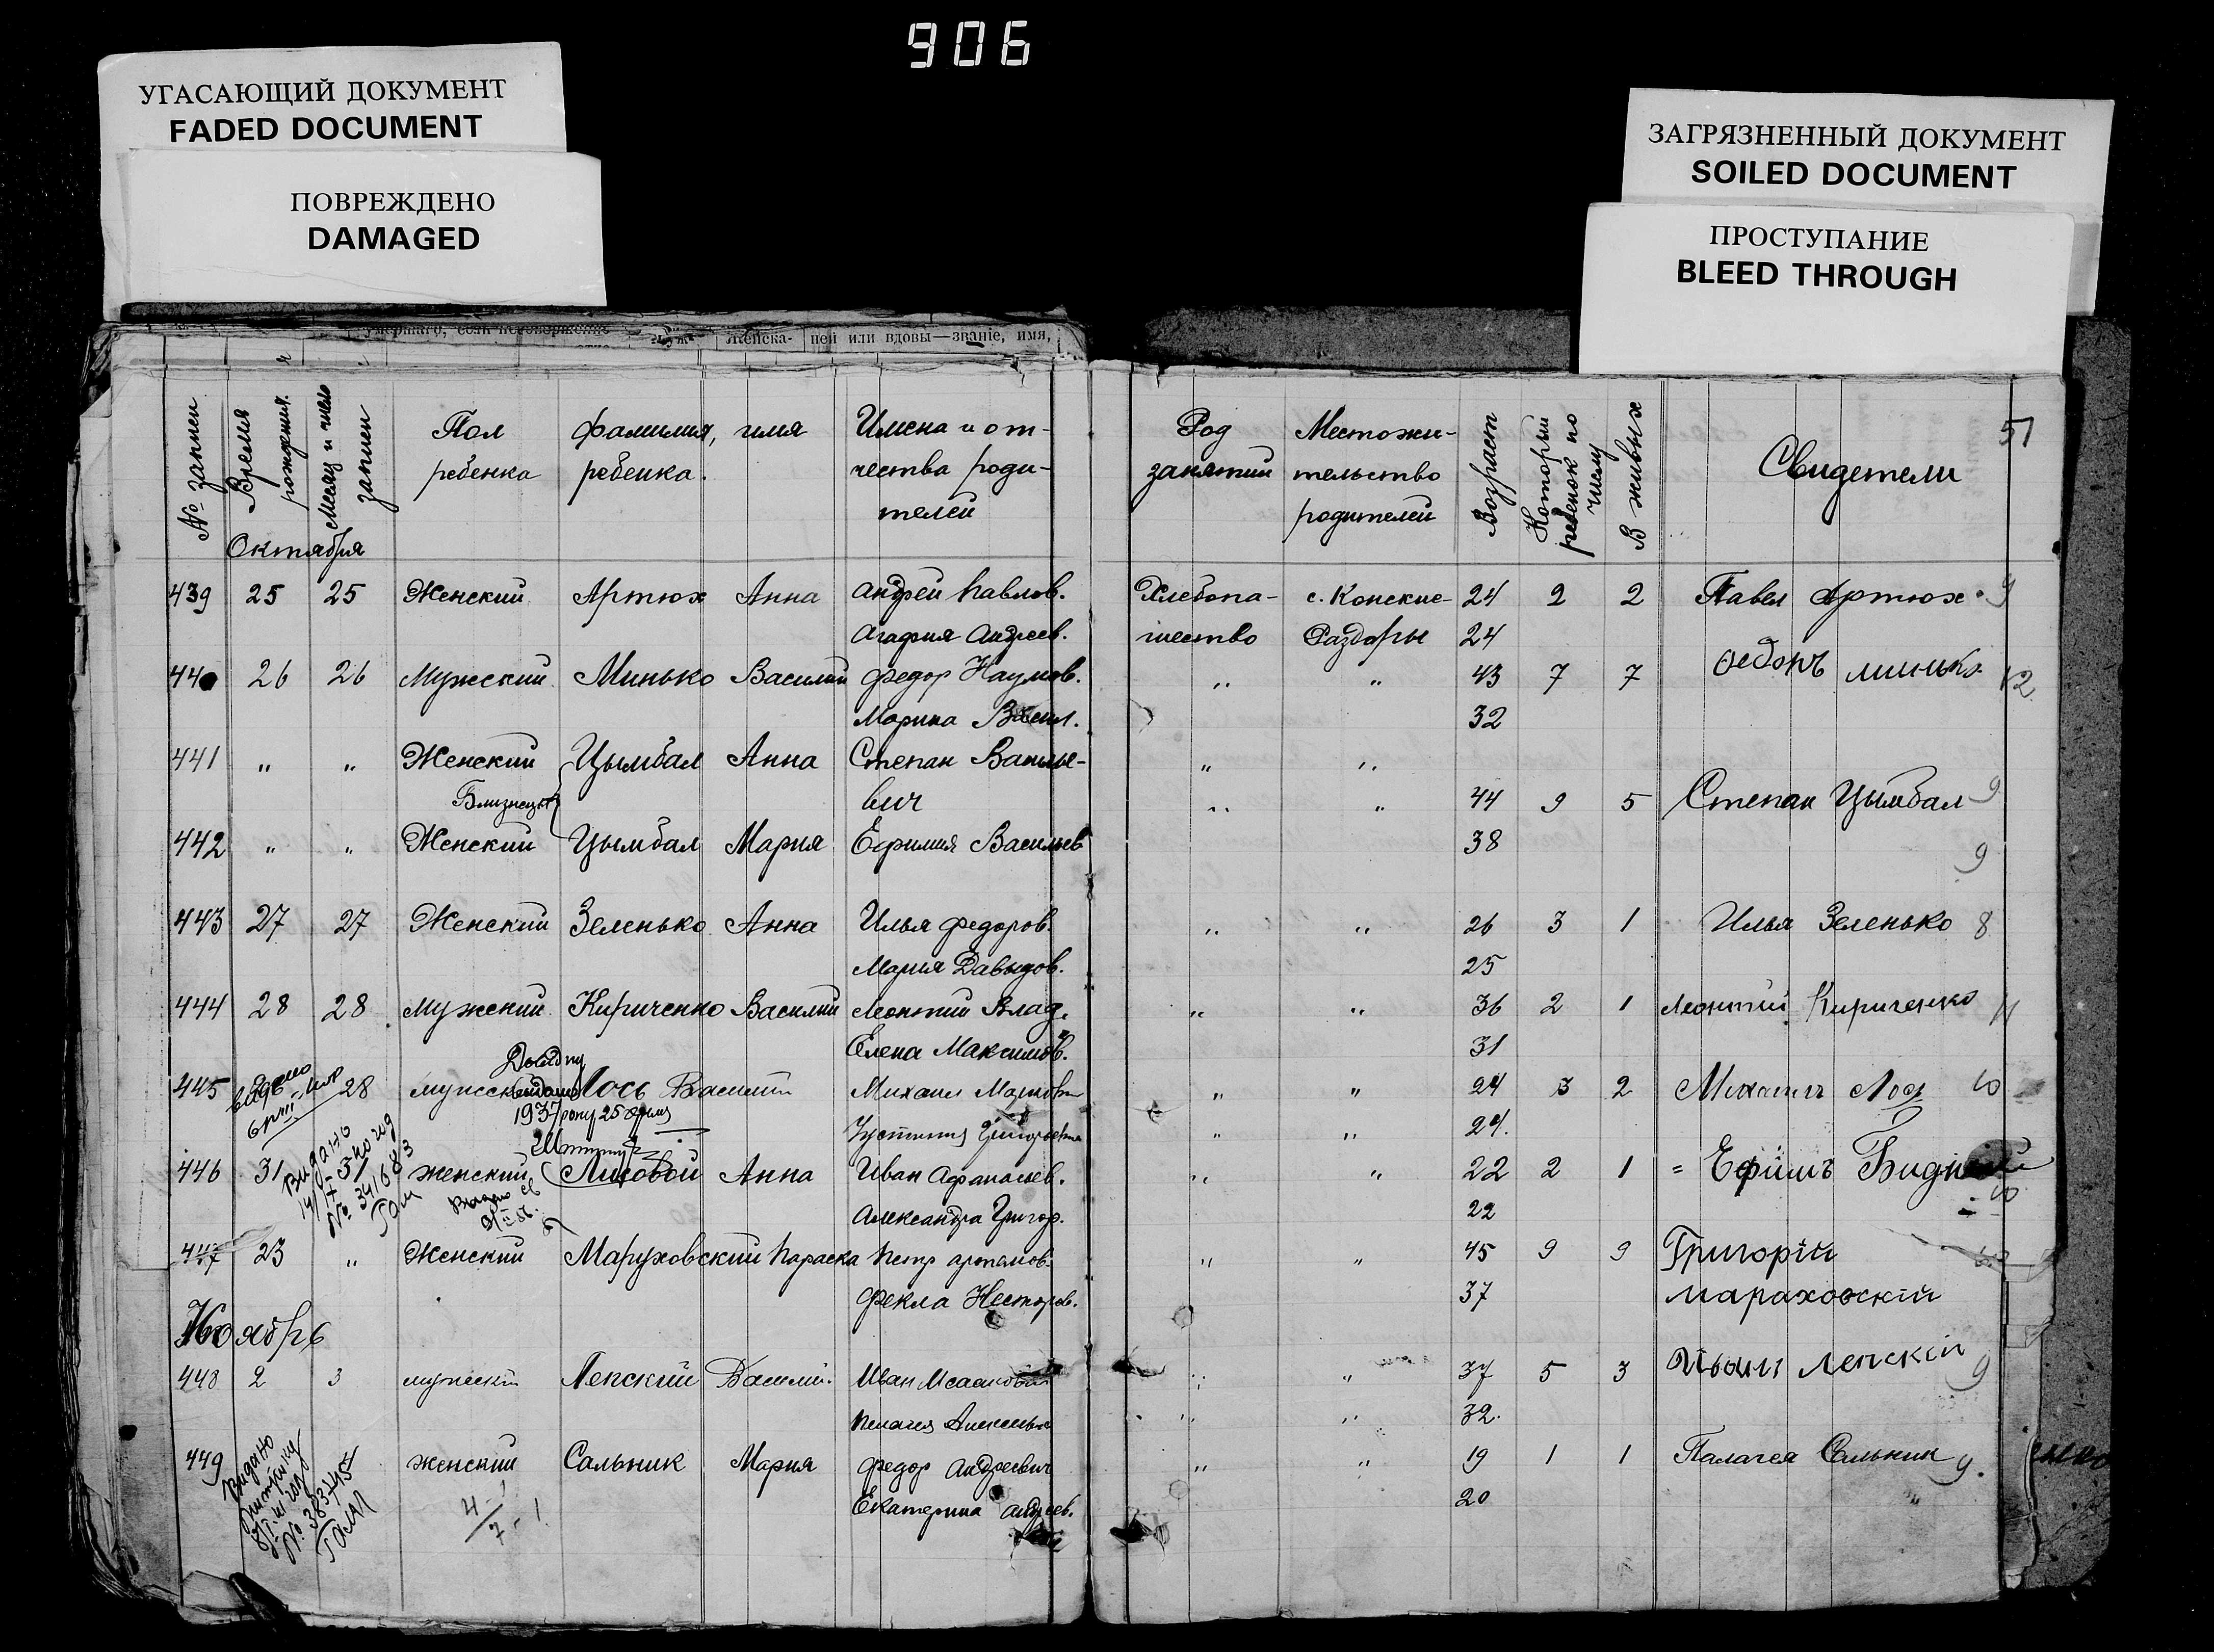 906
УГАСАЮЩИЙ ДОКУМЕНТ
FADED DOCUMENT
ПОВРЕЖДЕНО
DAMAGED
ЗАГРЯЗНЕННЫЙ ДОКУМЕНТ
SOILED DOCUMENT
ПРОСТУПАНИЕ
BLEED THROUGH
ней или вдовы—званіе, имя,
51
№ записи
Время рождения
Месяц и число записи
Пол ребенка
Фамилия, имя ребенка.
Имена и от-
чества роди-
телей
Род занятий
Местожи-
тельство
родителей
Возраст
Который ребенок по числу
В живых
Свидетели
Октября
439 25 25 Женский Артюх Анна Андрей Павлов. Хлебопа- с. Конские- 24 2 2 Павел Артюх. 9
Агафия Андреев. шество Раздоры 24
440 26 26 Мужский Минько Василий Федор Наумов. " " 43 7 7 Федоръ Минько 12
Марина Васил. 32
441 " " Женский Цымбал Анна Степан Василье- " "
Близнецы вич " " 44 9 5 Степан Цымбал 9
442 " " Женский Цымбал Мария Ефимия Васильев 38 9
443 27 27 Женский Зеленько Анна Илья Федоров. " " 26 3 1 Илья Зеленько 8
Мария Давыдов. 25
444 28 28 Мужский Кириченко Василий Леонтий Влад. " " 36 2 1 Леонтий Кириченко 11
Елена Максимов. 31
445 28 мужский Лось Василий Михаил Маркович " " 24 3 2 Михаилъ Лось 10
1937 року 25
Устиния Григорьевна " " 24.
446 31 31 женский Лисовой Анна Иван Афанасьев. " " 22 2 1 = Ефимъ
Видано
№ 341683
Александра Григор. 22
447 23 " Женский Маруховский Параска Петр Артамов. " " 45 9 9 Григорій
Фекла Несторов. 37 Мараховскій
Ноябрь
448 2 3 мужскій Лепский Василий. Иван Исаакович " " 37 5 3 Иванъ Лепскій 9
Пелагея Алексеевна " " 32.
449 женский Сальник Мария Федор Андреевич " " 19 1 1 Палагея Сальник 9.
Екатерина Андреев. 20
Видано
№ 383745
4/7-1